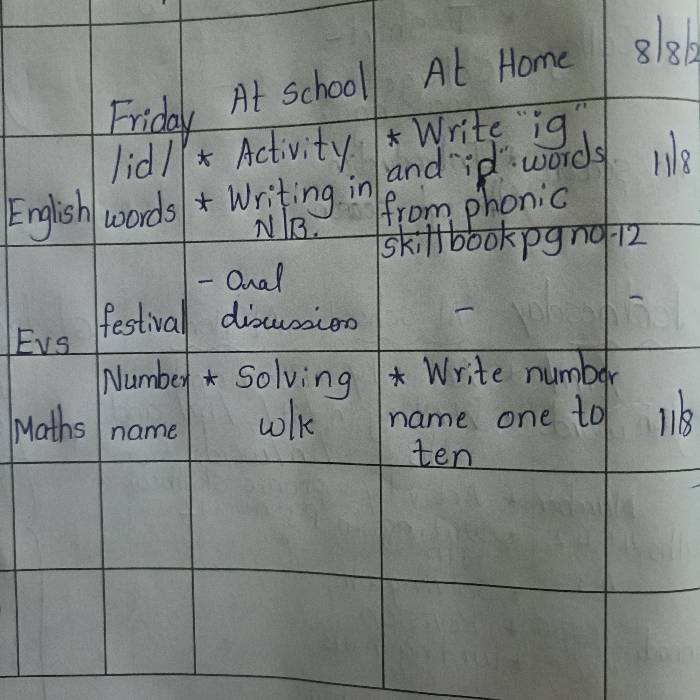 Friday At School At Home 8/8/2
English /id/ words * Activity * Write "ig"
* Writing in N/B. and "ip" words from phonic skillbook pg no-12 11/8
Evs festival - Oral discussion - -
Maths Number name * Solving w/k * Write number name one to ten 11/8